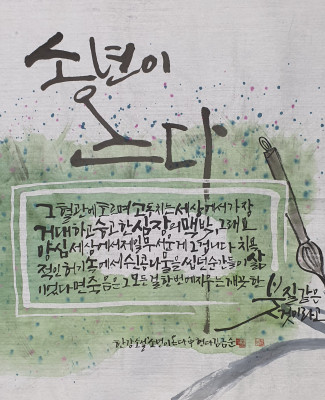 소년이
온다
그 혈관에 흐르며 고동치는 세상에서 가장
거대하고 숭고한 심장의 맥박, 그래요
양심 세상에서 제일 무서운 게 그겁니다 치욕
적인 허기 속에서 쉰 콩나물을 씹던 순간들이 삶
이었다면 죽음은 그 모든 걸 한번에 지우는 깨끗한
붓질 같은
것이라고
한강 소설 소년이 온다 中